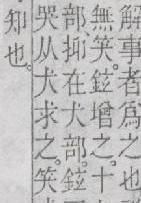 解事者爲之也
無笑。鉉增之。十
部抑在犬部。鉉
哭从犬求之。笑
知也。